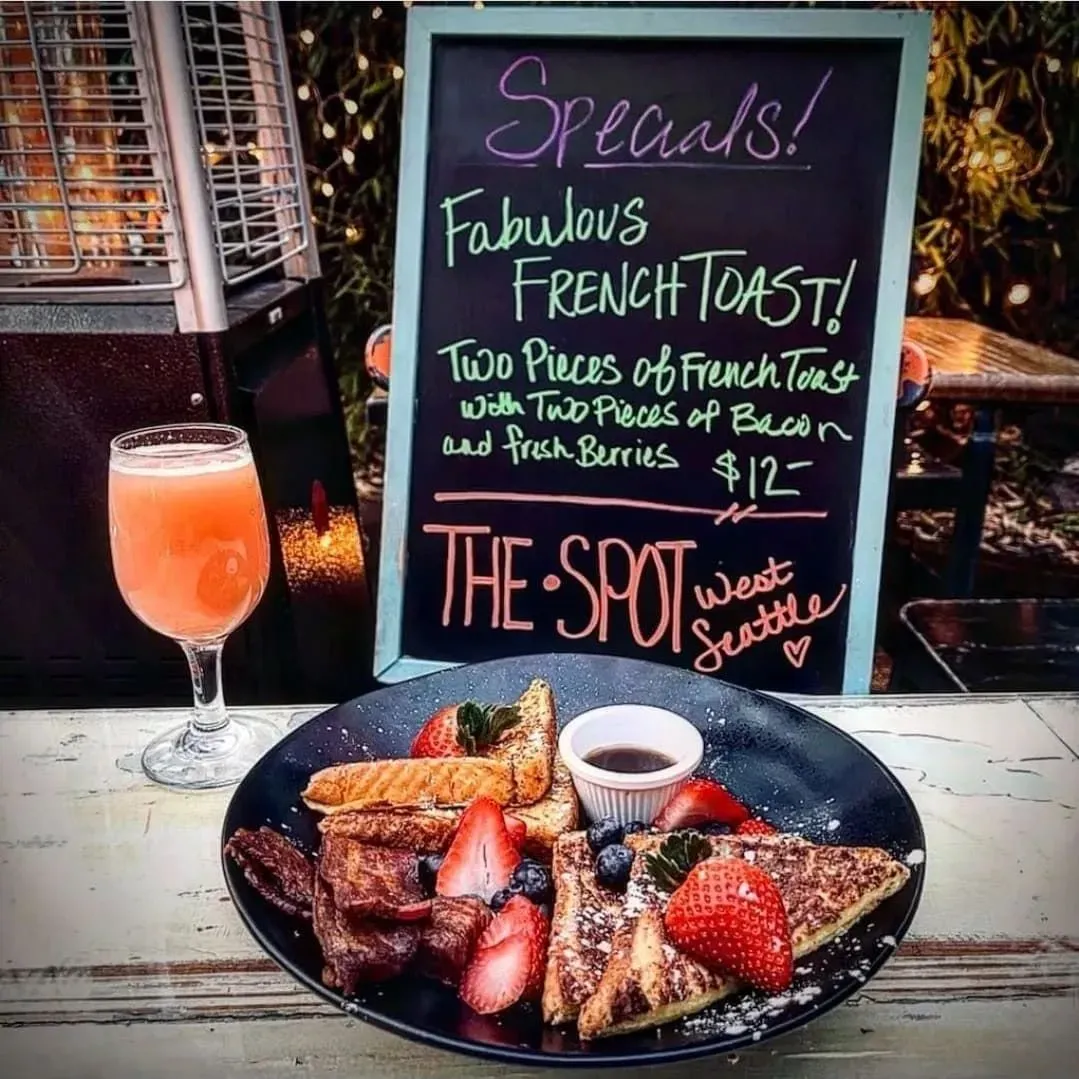 Specials!
Fabulous
FRENCH TOAST!
Two Pieces of French Toast
with Two Pieces of Bacon
and fresh Berries $12-
THE • SPOT West
Seattle ♡